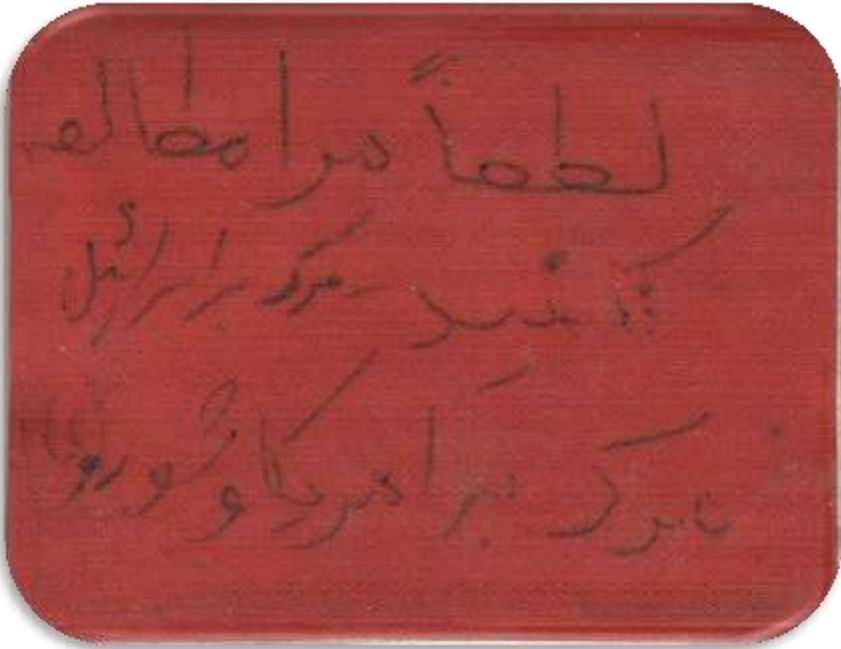 لطفاً مرا مطالعه
کنید مرگ بر اسرائیل
مرگ بر امریکا و شوروی